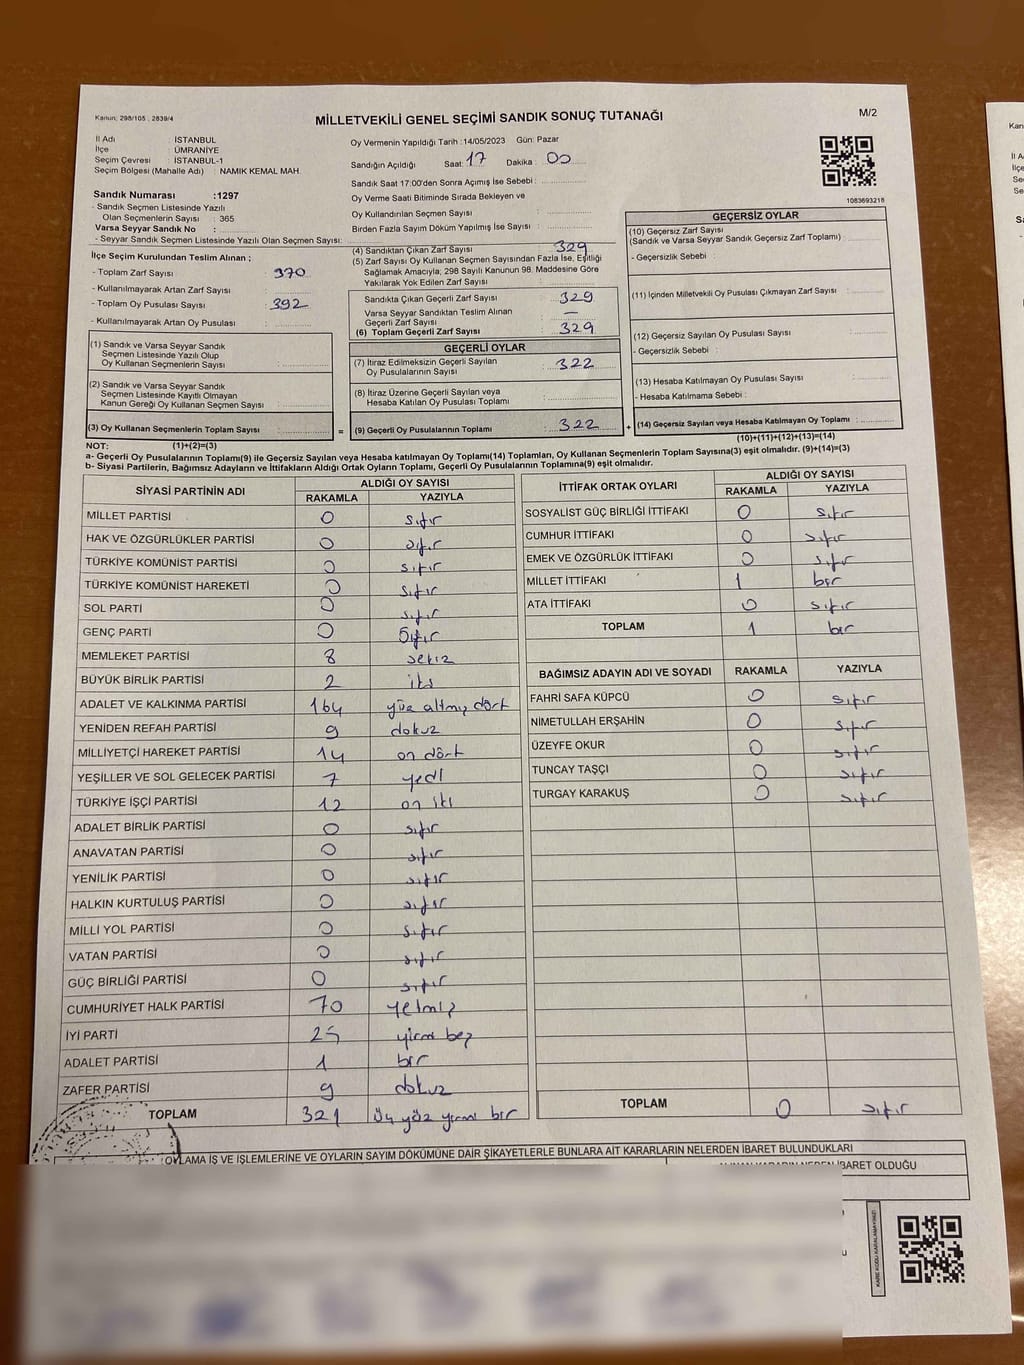 Kanun: 298/105 , 2839/4
MİLLETVEKİLİ GENEL SEÇİMİ SANDIK SONUÇ TUTANAĞI
M/2
İl Adı : İSTANBUL
İlçe : ÜMRANİYE
Seçim Çevresi : İSTANBUL-1
Seçim Bölgesi (Mahalle Adı) : NAMIK KEMAL MAH.
Sandık Numarası :1297
- Sandık Seçmen Listesinde Yazılı
Olan Seçmenlerin Sayısı : 365
Varsa Seyyar Sandık No :
- Seyyar Sandık Seçmen Listesinde Yazılı Olan Seçmen Sayısı:
Oy Vermenin Yapıldığı Tarih :14/05/2023 Gün: Pazar
Sandığın Açıldığı Saat: 17 Dakika : 00
Sandık Saat 17:00'den Sonra Açımış İse Sebebi :
Oy Verme Saati Bitiminde Sırada Bekleyen ve
Oy Kullandırılan Seçmen Sayısı :
Birden Fazla Sayım Döküm Yapılmış İse Sayısı :
1083693218
İlçe Seçim Kurulundan Teslim Alınan ;
- Toplam Zarf Sayısı : 370
- Kullanılmayarak Artan Zarf Sayısı :
- Toplam Oy Pusulası Sayısı : 392
- Kullanılmayarak Artan Oy Pusulası :
(1) Sandık ve Varsa Seyyar Sandık
Seçmen Listesinde Yazılı Olup
Oy Kullanan Seçmenlerin Sayısı :
(2) Sandık ve Varsa Seyyar Sandık
Seçmen Listesinde Kayıtlı Olmayan
Kanun Gereği Oy Kullanan Seçmen Sayısı :
(3) Oy Kullanan Seçmenlerin Toplam Sayısı :
(4) Sandıktan Çıkan Zarf Sayısı : 329
(5) Zarf Sayısı Oy Kullanan Seçmen Sayısından Fazla İse, Eşitliği
Sağlamak Amacıyla; 298 Sayılı Kanunun 98. Maddesine Göre
Yakılarak Yok Edilen Zarf Sayısı :
Sandıkta Çıkan Geçerli Zarf Sayısı : 329
Varsa Seyyar Sandıktan Teslim Alınan
Geçerli Zarf Sayısı : —
(6) Toplam Geçerli Zarf Sayısı : 329
GEÇERLİ OYLAR
(7) İtiraz Edilmeksizin Geçerli Sayılan
Oy Pusulalarının Sayısı : 322
(8) İtiraz Üzerine Geçerli Sayılan veya
Hesaba Katılan Oy Pusulası Toplamı :
= (9) Geçerli Oy Pusulalarının Toplamı : 322 +
GEÇERSİZ OYLAR
(10) Geçersiz Zarf Sayısı
(Sandık ve Varsa Seyyar Sandık Geçersiz Zarf Toplamı) :
- Geçersizlik Sebebi :
(11) İçinden Milletvekili Oy Pusulası Çıkmayan Zarf Sayısı :
(12) Geçersiz Sayılan Oy Pusulası Sayısı :
- Geçersizlik Sebebi :
(13) Hesaba Katılmayan Oy Pusulası Sayısı :
- Hesaba Katılmama Sebebi :
(14) Geçersiz Sayılan veya Hesaba Katılmayan Oy Toplamı :
NOT: (1)+(2)=(3)
(10)+(11)+(12)+(13)=(14)
a- Geçerli Oy Pusulalarının Toplamı(9) ile Geçersiz Sayılan veya Hesaba katılmayan Oy Toplamı(14) Toplamları, Oy Kullanan Seçmenlerin Toplam Sayısına(3) eşit olmalıdır. (9)+(14)=(3)
b- Siyasi Partilerin, Bağımsız Adayların ve İttifakların Aldığı Ortak Oyların Toplamı, Geçerli Oy Pusulalarının Toplamına(9) eşit olmalıdır.
SİYASİ PARTİNİN ADI ALDIĞI OY SAYISI
RAKAMLA YAZIYLA
MİLLET PARTİSİ 0 sıfır
HAK VE ÖZGÜRLÜKLER PARTİSİ 0 sıfır
TÜRKİYE KOMÜNİST PARTİSİ 0 sıfır
TÜRKİYE KOMÜNİST HAREKETİ 0 sıfır
SOL PARTİ 0 sıfır
GENÇ PARTİ 0 sıfır
MEMLEKET PARTİSİ 8 sekiz
BÜYÜK BİRLİK PARTİSİ 2 iki
ADALET VE KALKINMA PARTİSİ 164 yüz altmış dört
YENİDEN REFAH PARTİSİ 9 dokuz
MİLLİYETÇİ HAREKET PARTİSİ 14 on dört
YEŞİLLER VE SOL GELECEK PARTİSİ 7 yedi
TÜRKİYE İŞÇİ PARTİSİ 12 on iki
ADALET BİRLİK PARTİSİ 0 sıfır
ANAVATAN PARTİSİ 0 sıfır
YENİLİK PARTİSİ 0 sıfır
HALKIN KURTULUŞ PARTİSİ 0 sıfır
MİLLİ YOL PARTİSİ 0 sıfır
VATAN PARTİSİ 0 sıfır
GÜÇ BİRLİĞİ PARTİSİ 0 sıfır
CUMHURİYET HALK PARTİSİ 70 yetmiş
İYİ PARTİ 25 yirmi beş
ADALET PARTİSİ 1 bir
ZAFER PARTİSİ 9 dokuz
TOPLAM 321 üç yüz yirmi bir
İTTİFAK ORTAK OYLARI ALDIĞI OY SAYISI
RAKAMLA YAZIYLA
SOSYALİST GÜÇ BİRLİĞİ İTTİFAKI 0 sıfır
CUMHUR İTTİFAKI 0 sıfır
EMEK VE ÖZGÜRLÜK İTTİFAKI 0 sıfır
MİLLET İTTİFAKI 1 bir
ATA İTTİFAKI 0 sıfır
TOPLAM 1 bir
BAĞIMSIZ ADAYIN ADI VE SOYADI RAKAMLA YAZIYLA
FAHRİ SAFA KÜPCÜ 0 sıfır
NİMETULLAH ERŞAHİN 0 sıfır
ÜZEYFE OKUR 0 sıfır
TUNCAY TAŞÇI 0 sıfır
TURGAY KARAKUŞ 0 sıfır
TOPLAM 0 sıfır
OYLAMA İŞ VE İŞLEMLERİNE VE OYLARIN SAYIM DÖKÜMÜNE DAİR ŞİKAYETLERLE BUNLARA AİT KARARLARIN NELERDEN İBARET BULUNDUKLARI
İBARET OLDUĞU
KARE KODU KARALAMAYINIZ!